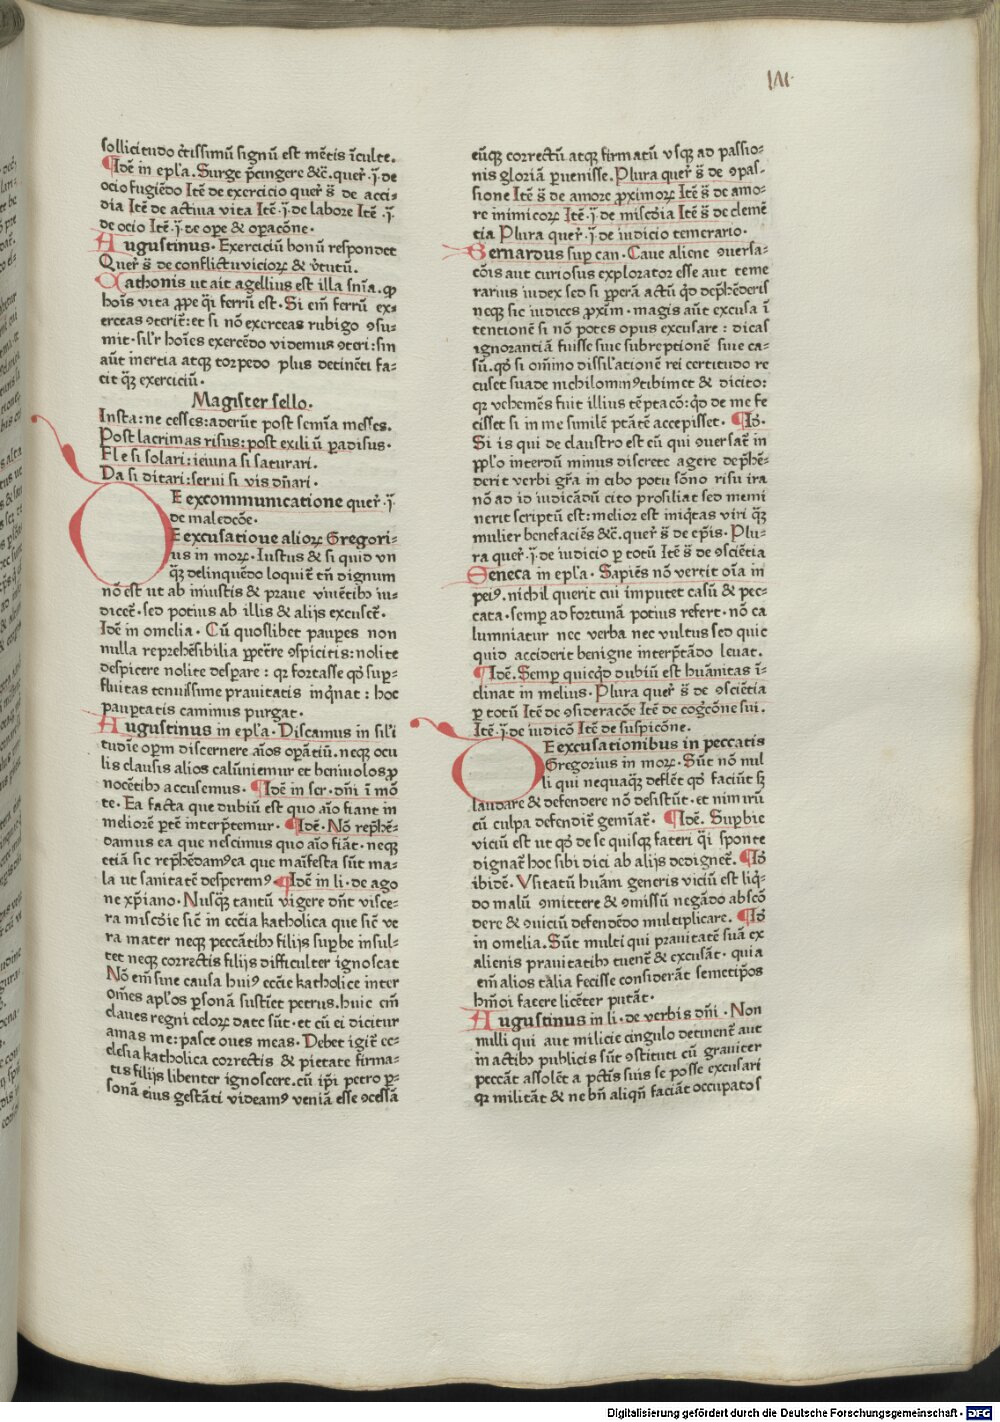 sollicitudo c̄tissimū signū est mētis īculte.
¶Idē in epl'a. Surge p̄cingere &c̄. quer̄ .j̄. de
ocio fugiēdo Itē de exercicio quer̄ s̄ de acci-
dia Itē de actiua vita Itē .j̄. de labore Itē .j̄.
de ocio Itē .j̄. de oꝑe & oꝑacōne.
Augustinus. Exerciciū bonū respondet
Quer̄ s̄ de conflictu vicioꝝ & v̄tutū.
Cathonis ut ait agellius est illa sn̄ia. ꝙ
hoīs vita ꝓpe q̄i ferrū est. Si em̄ ferrū ex-
erceas ꝯterit̄: et si nō exerceas rubigo ꝯsu-
mit. sil'r hoīes exercēdo videmus ꝯteri: sin
aūt inertia atqꝫ torpedo plus detinēti fa-
cit qꝫ̄ exerciciū.
Magister sello.
Insta: ne cesses: aderūt post semīa messes.
Post lacrimas risus: post exiliū ꝑadisus.
Fle si solari: ieiuna si saturari.
Da si ditari: serui si vis dn̄ari.
E excommunicatione quer̄ .j̄.
de maledcōe.
E excusatioue alioꝝ Gregori-
us in moꝝ. Iustus & si quid vn
qꝫ̄ delinquēdo loquit̄ tn̄ dignum
nō est ut ab iniustis & praue viuētibꝰ iu-
dicet̄. sed potius ab illis & alijs excuset̄.
Idē in omelia. Cū quoslibet pauꝑes non
nulla rep̄hēsibilia ꝓpet̄re ꝯspicitis: nolite
despicere nolite desꝑare: qꝛ fortasse qd̄ suꝑ-
fluitas tenuissime prauitatis inq̄nat: hoc
pauꝑtatis caminus purgat.
Augustinus in epl'a. Discamus in sil'i
tudīe oꝑm discernere aīos oꝑātiū. neqꝫ ocu
lis clausis alios calūniemur et beniuolos ꝓ
nocētibꝰ accusemus. ¶Idē in ser. dn̄i ī mō
te. Ea facta que dubiū est quo aīo fiant in
meliorē ꝑtē interp̄temur. ¶Idē. Nō rep̄hē-
damus ea que nescimus quo aīo fiāt. neqꝫ
etiā sic rep̄hēdamꝰ ea que maīfesta sūt ma-
la ut sanitatē desperemꝰ ¶Idē in li. de ago
ne xp̄iano. Nusqꝫ̄ tantū vigere dn̄t visce-
ra miscd̄ie sic̄ in ecc̄ia katholica que sic̄ ve
ra mater neqꝫ peccātibꝰ filijs suꝑbe insul-
tet neqꝫ correctis filijs difficulter ignoscat
Nō em̄ sine causa huiꝰ ecc̄ie katholice inter
om̄es apl'os ꝑsonā sustīet petrus. huic em̄
claues regni celoꝝ date sūt. et cū ei dicitur
amas me: pasce oues meas. Debet igit̄ ec-
clesia katholica correctis & pietate firma-
tis filijs libenter ignoscere. cū ip̄i petro ꝑ-
sonā eius gestāti videamꝰ veniā esse ꝯcessā
eūqꝫ correctū atqꝫ firmatū vsqꝫ ad passio-
nis gloriā ꝑuenisse. Plura quer̄ s̄ de ꝯpas-
sione Itē s̄ de amore ꝓximoꝝ Itē s̄ de amo-
re inimicoꝝ Itē .j̄. de miscd̄ia Itē s̄ de clemē
tia Plura quer̄ .j̄. de iudicio temerario.
Bernardus suꝑ can. Caue aliene ꝯuersa-
cōis aut curiosus explorator esse aut teme
rarius iudex sed si ꝑperā actū qd̄ dep̄hēderis
neqꝫ sic iudices ꝓxīm. magis aūt excusa ī
tentionē si nō potes opus excusare: dicas
ignorantiā fuisse siue subreptionē siue ca-
sū. qd̄ si om̄ino dissil'ationē rei certitudo re
cuset suade nichilominꝰ tibimet & dicito:
qꝛ vehemēs fuit illius tēptacō: qd̄ de me fe
cisset si in me similē ptātē accepisset. ¶Id̄.
Si is qui de claustro est cū qui ꝯuersat̄ in
ppl'o interdū minus discrete agere dep̄hē-
derit verbi gr̄a in cibo potu sōno risu ira
nō ad id iudicādū cito prosiliat sed memi
nerit scriptū est: melior est iniq̄tas viri qꝫ̄
mulier benefaciēs &c̄. quer̄ s̄ de ep̄is. Plu-
ra quer̄ .j̄. de iudicio ꝑ totū Itē s̄ de ꝯsciētia
Seneca in epl'a. Sapiēs nō vertit oīa in
peiꝰ. nichil querit cui imputet casū & pec-
cata. semꝑ ad fortunā potius refert. nō ca
lumniatur nec verba nec vultus sed quic
quid acciderit benigne interp̄tādo leuat.
¶Idē. Semꝑ quicqd̄ dubiū est huānitas ī-
clinat in melius. Plura quer̄ s̄ de ꝯsciētia
ꝑ totū Itē de ꝯsideracōe Itē de cogc̄ōne sui.
Itē .j̄. de iudicō Itē de suspicōne.
E excusationibus in peccatis
Gregorius in moꝝ. Sūt nō nul
li qui nequaqꝫ̄ deflēt qd̄ faciūt sꝫ
laudare & defendere nō desistūt. et nimirū
cū culpa defendit̄ gemīat̄. ¶Idē. Suꝑbie
viciū est ut qd̄ de se quisqꝫ fateri q̄i sponte
dignat̄ hoc sibi dici ab alijs dedignet̄. ¶Id̄
ibidē. Vsitatū huām generis viciū est liq̄-
do malū ꝯmittere & ꝯmissū negādo abscō
dere & ꝯuiciū defendēdo multiplicare. ¶Id̄
in omelia. Sūt multi qui prauitatē suā ex
alienis prauitatibꝰ tuent̄ & excusāt. quia
em̄ alios tālia fecisse considerāt semetip̄os
hm̄oi facere licēter putāt.
Augustinus in li. de verbis dn̄i. Non
nulli qui aut milicie cingulo detinent̄ aut
in actibꝰ publicis sūt ꝯstituti cū grauiter
peccāt assolēt a pctīs suis se posse excusari
qꝛ militāt & ne bn̄ aliqn̄ faciāt occupatos
Digitalisierung gefördert durch die Deutsche Forschungsgemeinschaft - DFG